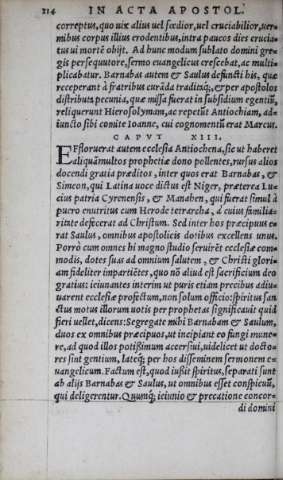 214 IN ACTA APOSTOL.
correptus, quo uix alius uel fœdior, uel cruciabilior, uer-
mibus corpus illius erodentibus, intra paucos dies crucia-
tus ui mortē obijt. Ad hunc modum sublato domini gre-
gis persequutore, sermo euangelicus crescebat, ac multi-
plicabatur. Barnabas autem & Saulus defuncti his, quæ
receperant à fratribus curāda traditaq́;, & per apostolos
distributa pecunia, quæ missa fuerat in subsidium egentiū,
reliquerunt Hierosolymam, ac repetūt Antiochiam, ad-
iuncto sibi comite Ioanne, cui cognomentū erat Marcus.
CAPVT XIII.
EFfloruerat autem ecclesia Antiochena, sic ut haberet
aliquāmultos prophetiæ dono pollentes, rursus alios
docendi gratia præditos, inter quos erat Barnabas, &
Simeon, qui Latina uoce dictus est Niger, præterea Lu-
cius patria Cyrenensis, & Manahen, qui fuerat simul à
puero enutritus cum Herode tetrarcha, à cuius familia-
ritate defecerat ad Christum. Sed inter hos præcipuus e-
rat Saulus, omnibus apostolicis dotibus excellens unus.
Porrò cum omnes hi magno studio seruirēt ecclesiæ com-
modis, dotes suas ad omnium salutem, & Christi glori-
am fideliter impartiētes, quo nō aliud est sacrificium deo
gratius: ieiunantes interim ut puris etiam precibus adiu-
uarent ecclesiæ profectum, non solum officio: spiritus san
ctus motus illorum uotis per prophetas significauit quid
fieri uellet, dicens: Segregate mihi Barnabam & Saulum,
duos ex omnibus præcipuos, ut incipiant eo fungi mune-
re, ad quod illos potissimum accersiui, uidelicet ut docto-
res sint gentium, lateq́; per hos disseminem sermonem e-
uangelicum. Factum est, quod iußit spiritus, separati sunt
ab alijs Barnabas & Saulus, ut omnibus esset conspicuū,
qui deligerentur. Quumq́; ieiunio & precatione concor-
di domini